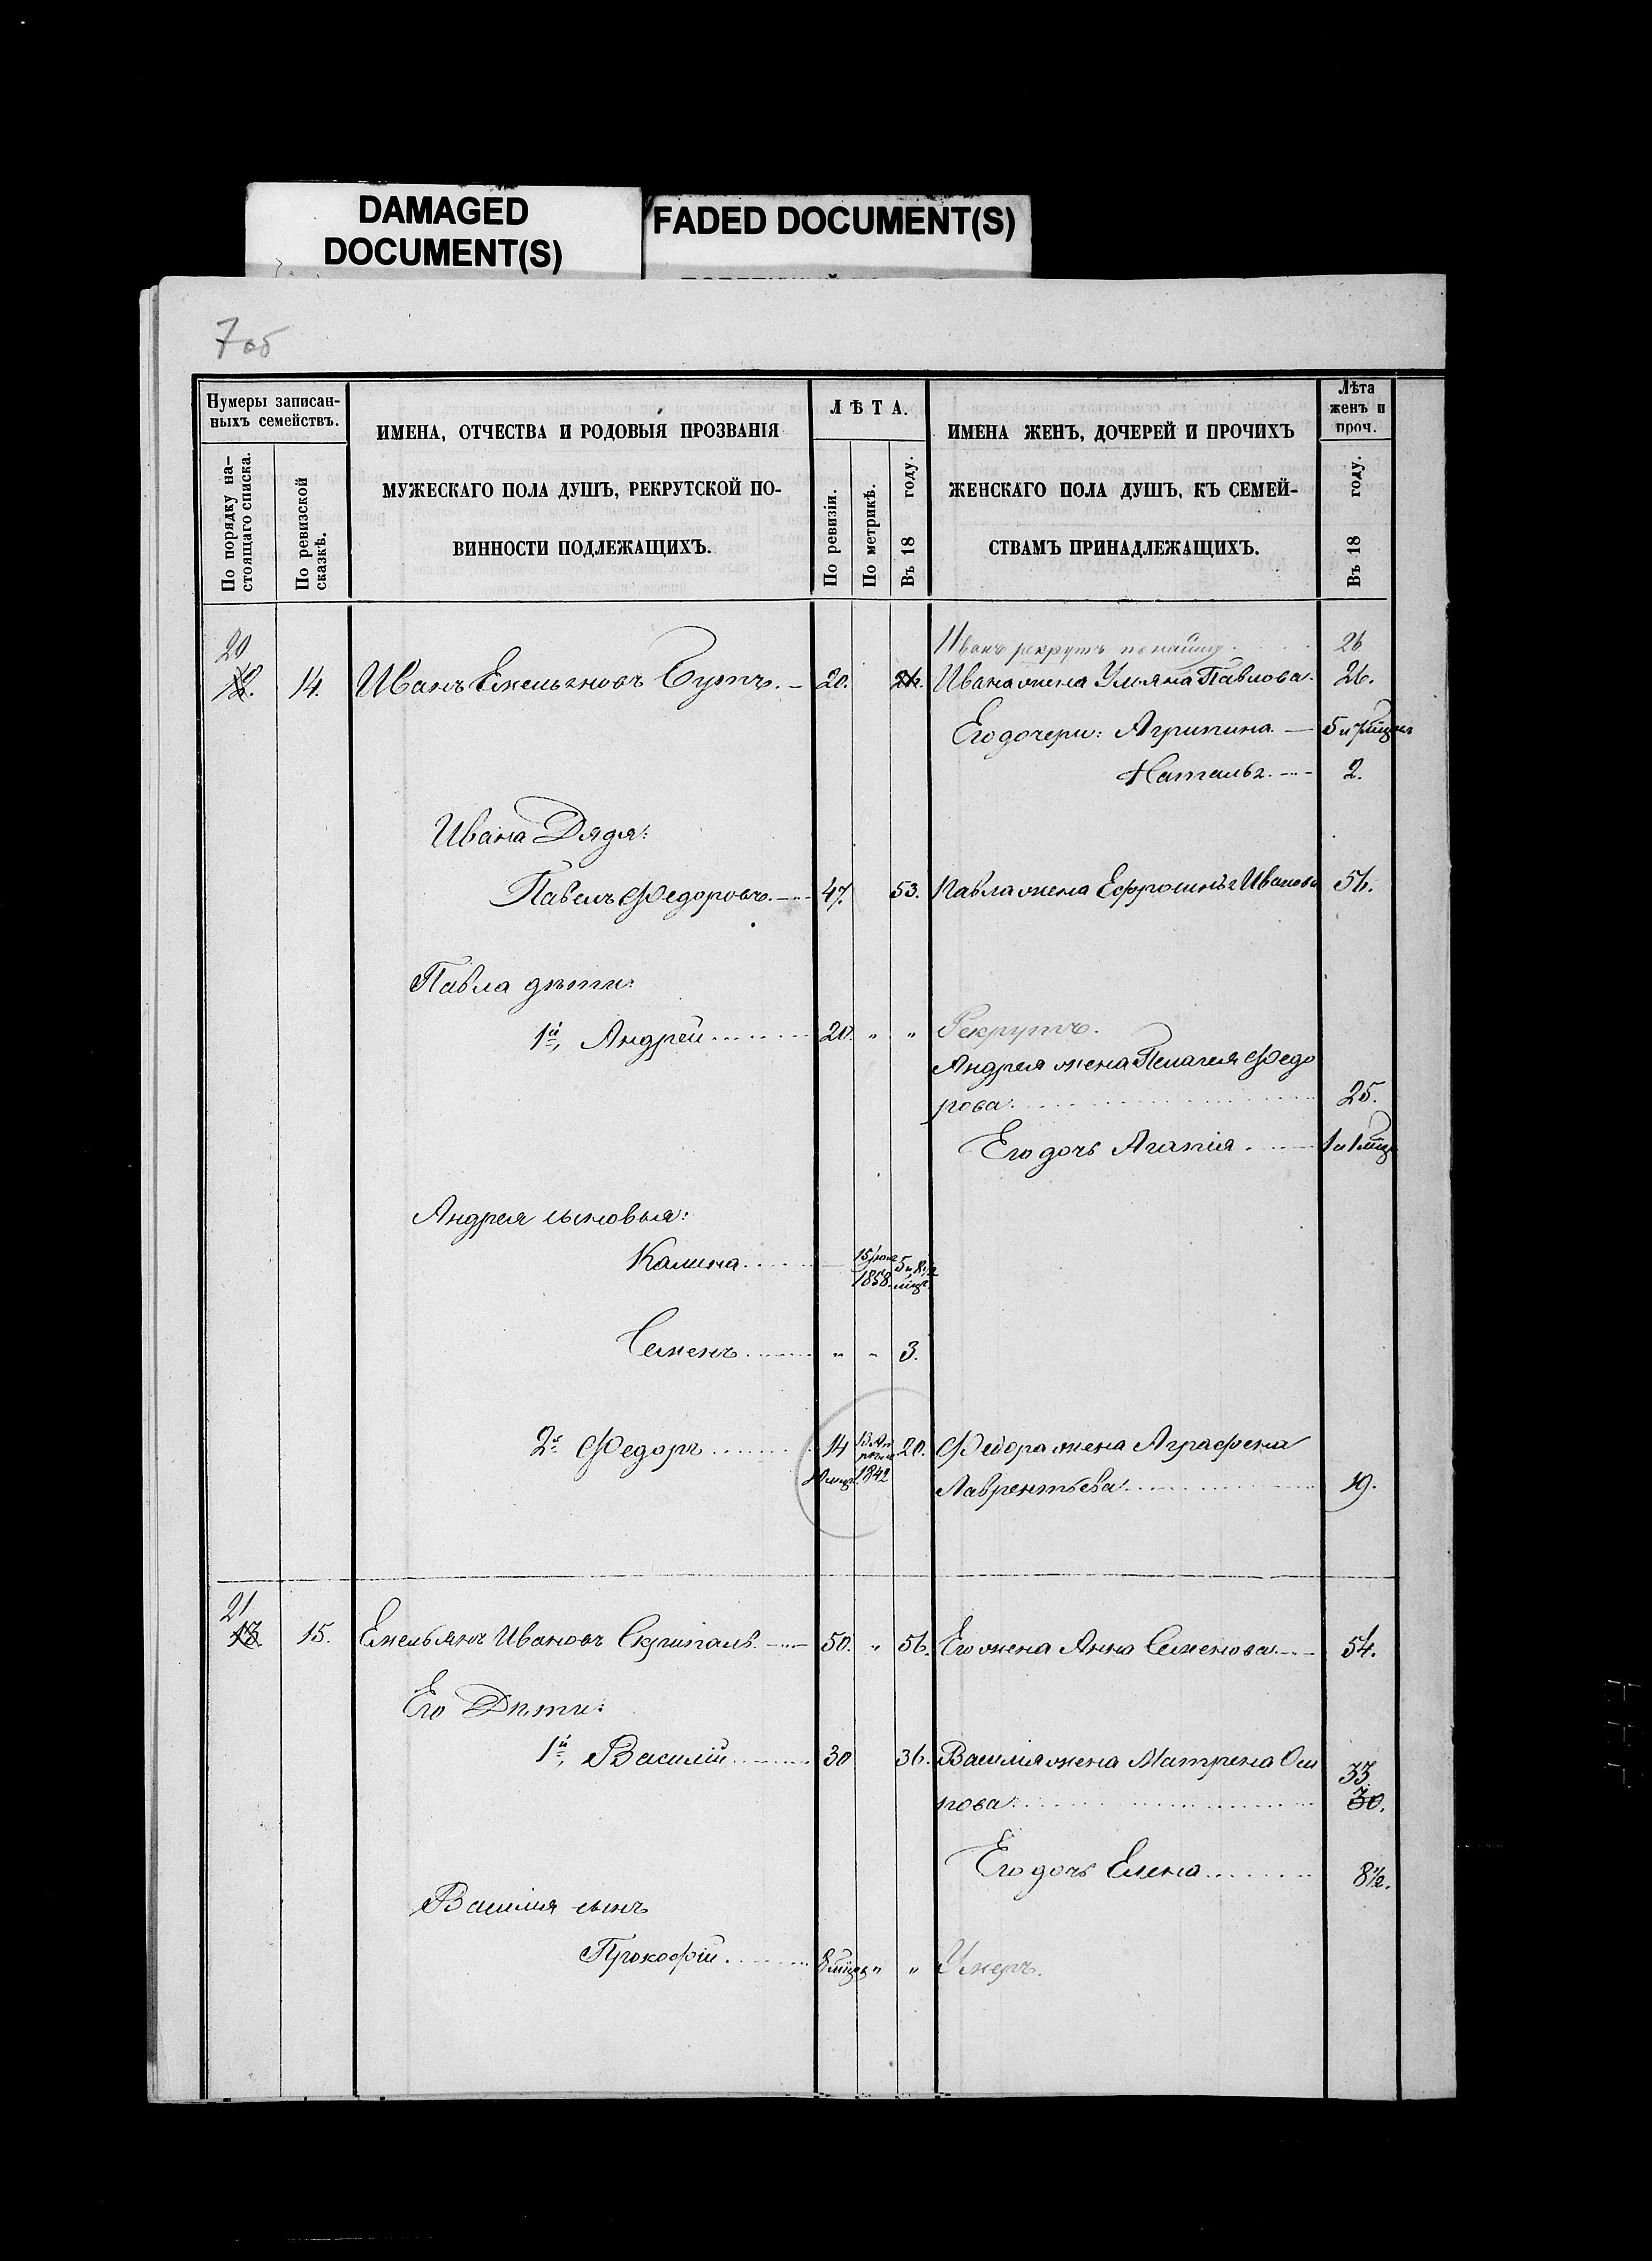 DAMAGED
DOCUMENT(S)
FADED DOCUMENT(S)
7 об
Нумеры записан-
ныхъ семействъ.
По порядку на-
стоящаго списка.
По ревизской
сказкѣ.
ИМЕНА, ОТЧЕСТВА И РОДОВЫЯ ПРОЗВАНІЯ
МУЖЕСКАГО ПОЛА ДУШЪ, РЕКРУТСКОЙ ПО-
ВИННОСТИ ПОДЛЕЖАЩИХЪ.
ЛѢТА.
По ревизіи.
По метрикѣ.
Въ 18 году.
ИМЕНА ЖЕНЪ, ДОЧЕРЕЙ И ПРОЧИХЪ
ЖЕНСКАГО ПОЛА ДУШЪ, КЪ СЕМЕЙ-
СТВАМЪ ПРИНАДЛЕЖАЩИХЪ.
Лѣта
женъ и
проч.
Въ 18 году.
20 Иванъ рекрутъ по найму 26
12. 14. Иванъ Емельяновъ Сутъ. 20. 26. Ивана жена Ульяна Павлова. 26.
Его дочери: Агрипина. 5 и
Наталья. 2.
Ивана Дядя:
Павелъ Федоровъ. 47. 53. Павла жена Ефросинья Иванова 56.
Павла дѣти:
1й, Андрей 20. " " Рекрутъ.
Андрея жена Пелагея Федо
рова. 25.
Его дочь Агапія. 1 и 1 мѣц
Андрея сыновья:
Калина. 15 1858. 5 и 8 1/2 мѣц.
Семенъ " " 3.
2й Федоръ 14 13 Ап
рѣля 1842 20. Федора жена Аграфена
Лаврентьева 19.
21
13. 15. Емельянъ Ивановъ Скрипаль. 50. " 56. Его жена Анна Семенова. 54.
Его Дѣти:
1й, Василій 30 36. Василія жена Матрена
33.
30.
Его дочь Елена 8 1/2.
Василія сынъ
Прокофій. 8 мѣц. " " Умеръ.